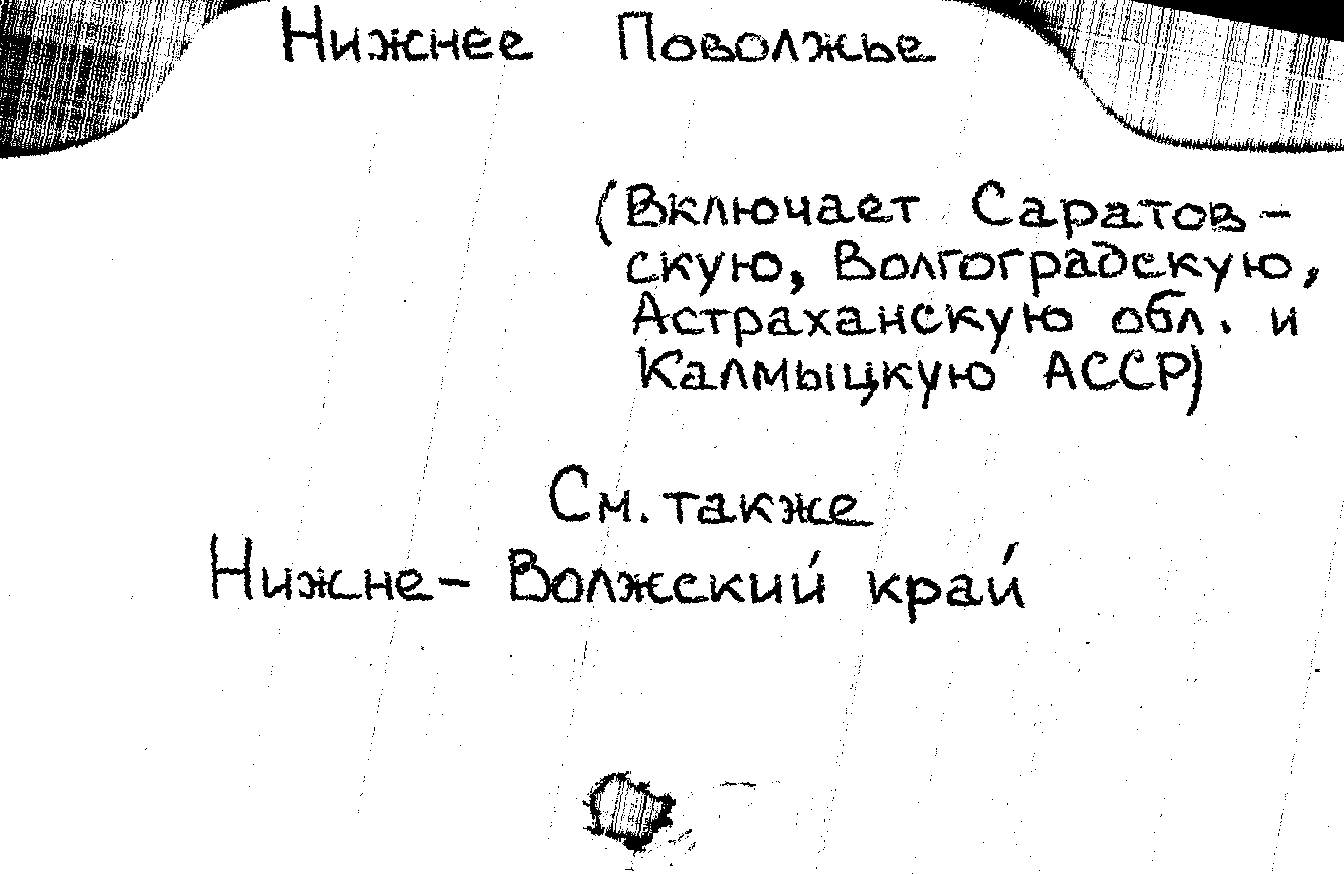 Нижнее Поволжье
(Включает Саратов-
скую, Волгоградскую,
Астраханскую обл. и
Калмыцкую АССР)
См. также
Нижне-Волжский край